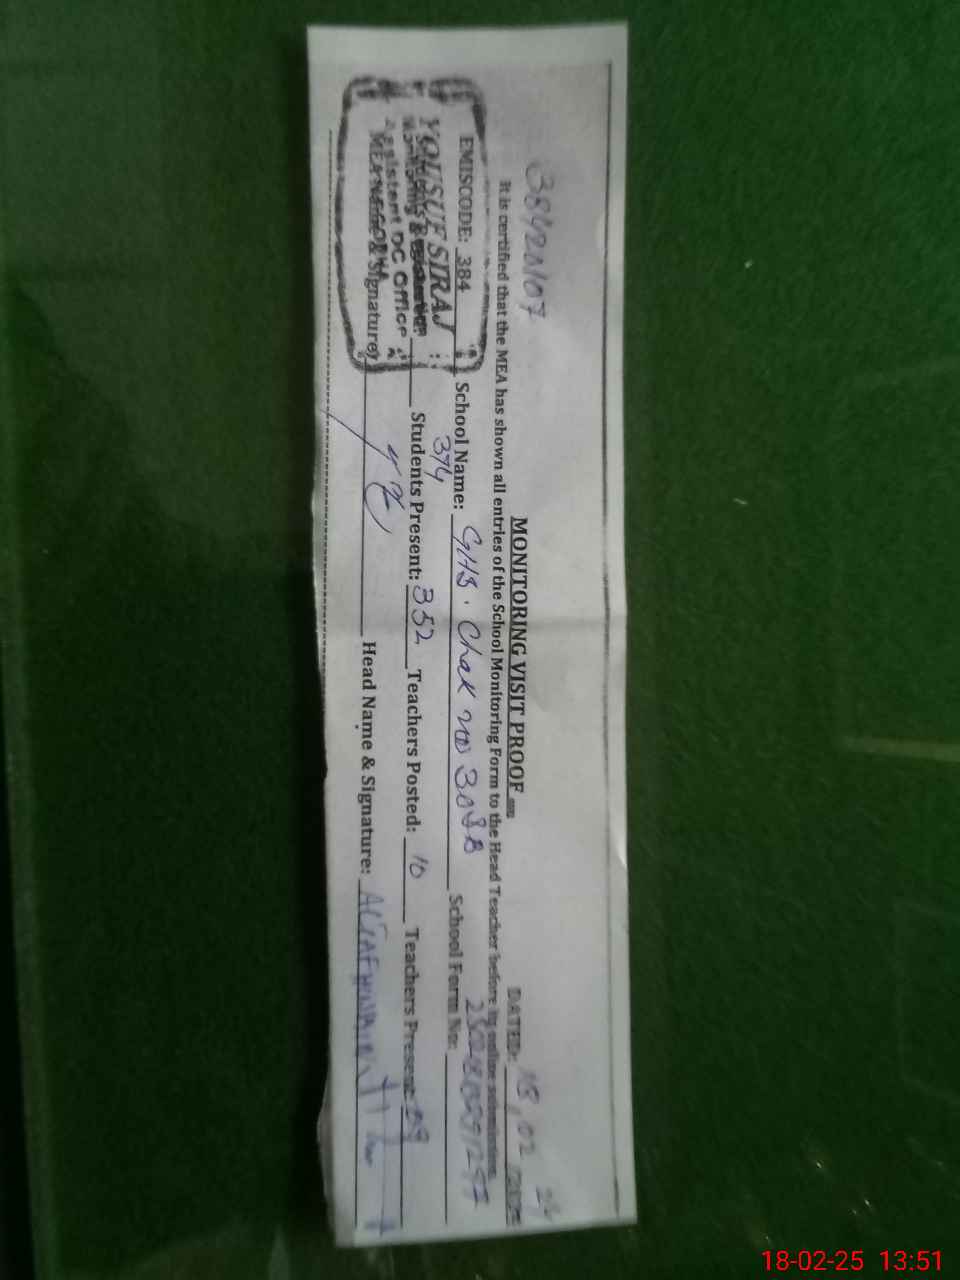 MONITORING VISIT PROOF
DATED: 18, 02
38420107
It is certified that the MEA has shown all entries of the School Monitoring Form to the Head Teacher before its online submission.
EMISCODE: 384 School Name: GHS. Chak no 30SB School Form No:
374
Students Present: 352 Teachers Posted: 10 Teachers Present: 09
YOUSUF SIRAJ
Assistent DC Office
MEA Name & Signature
Head Name & Signature:
18-02-25 13:51